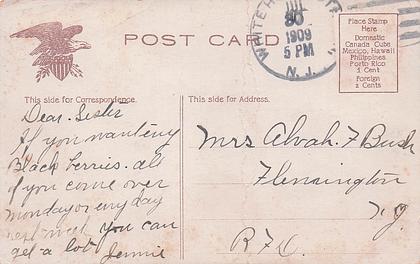 POST CARD
WHITEH
JUL
30
1909
5 PM
N. J.
Place Stamp
Here
Domestic
Canada Cuba
Mexico, Hawaii
Philippines
Porto Rico
1 Cent
Foreign
2 Cents
This side for Correspondence.
Dear. Sister
If you want eny
Black berries. all
if you come over
monday or eny day
next week you can
get a lot Jennie
This side for Address.
Mrs Alvah. F Bush
Flemington
N. J.
R F D.